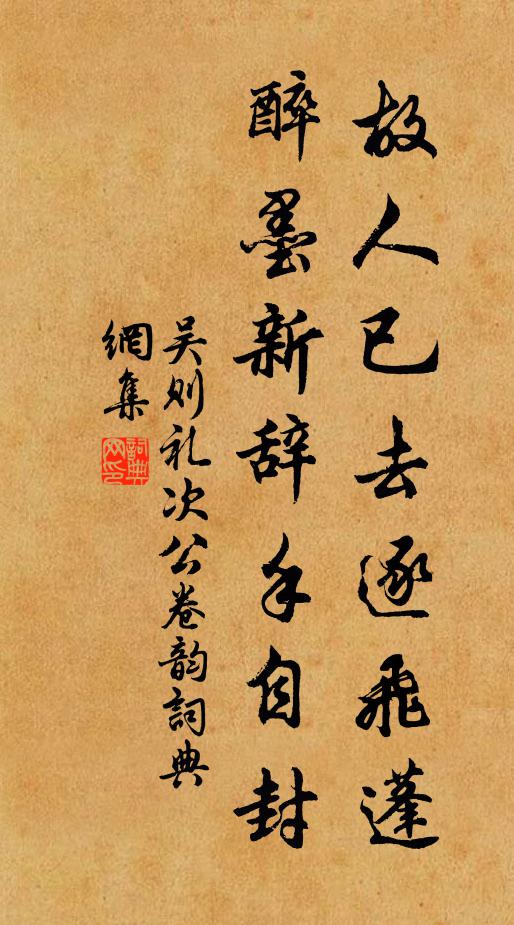 故人已去逐飛蓬
醉墨新辞手自封
吴则礼次公卷韵詞典
網集
詞典網印